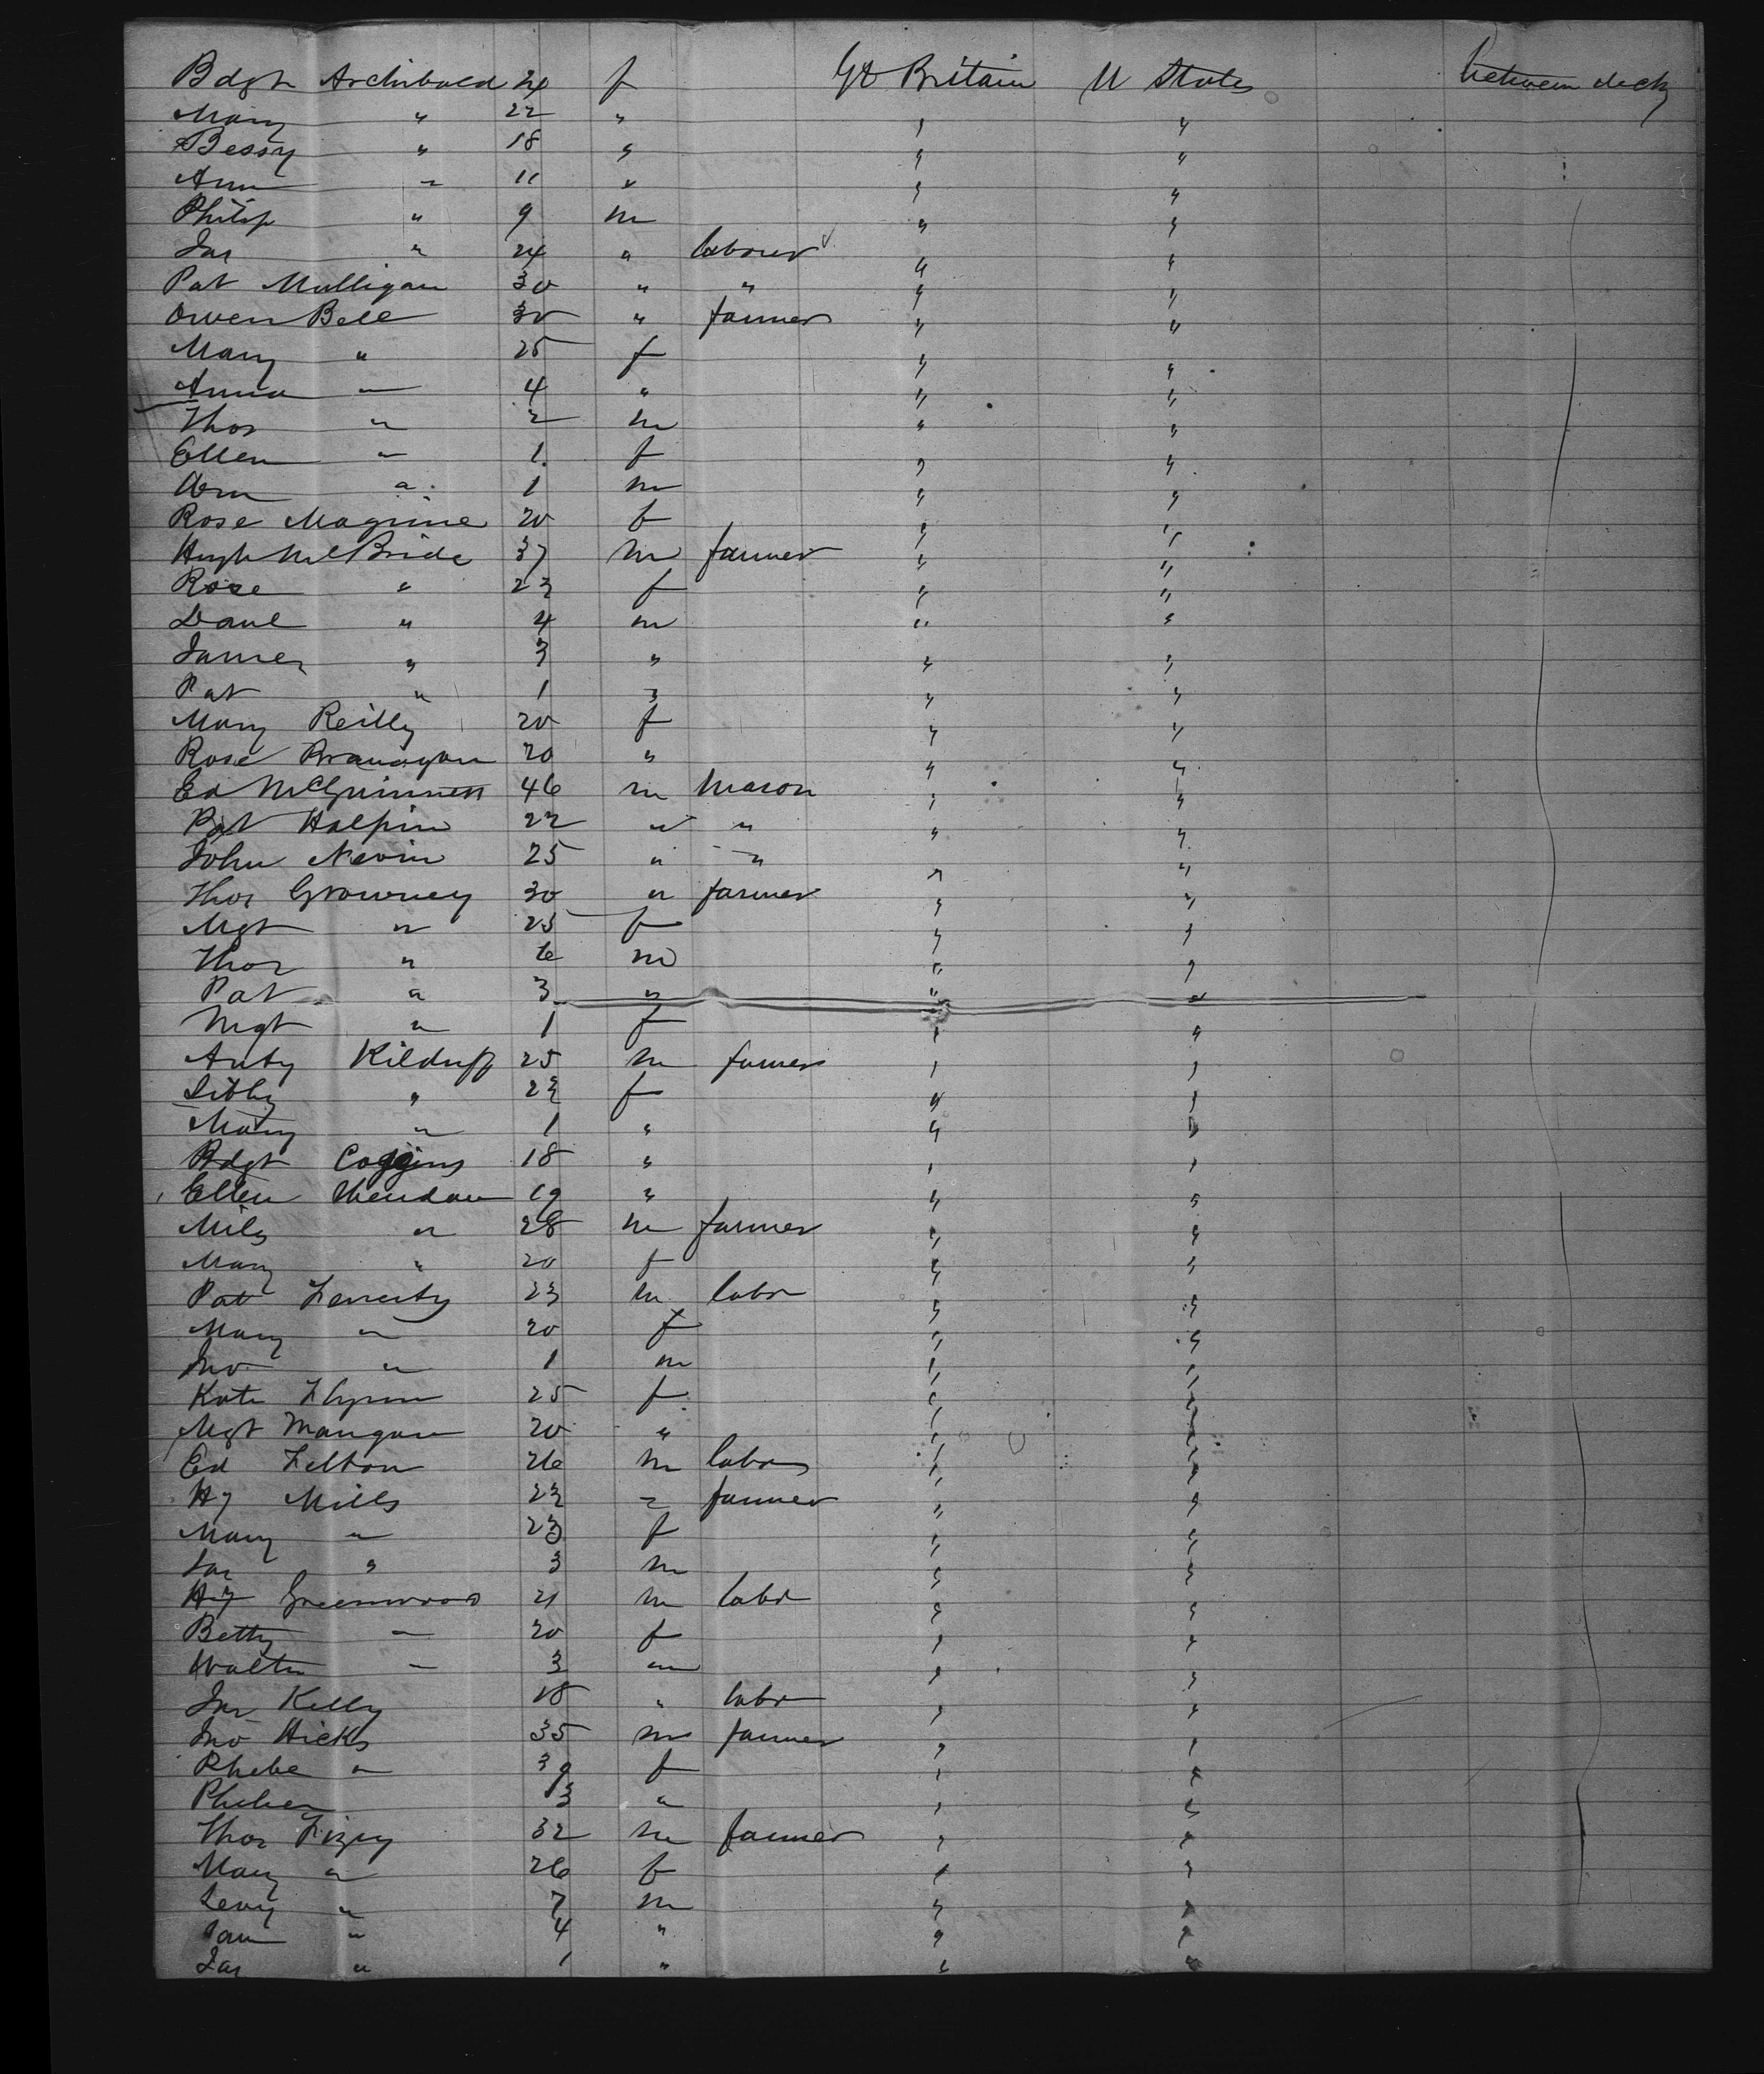 Bdgt Archibald 24 f Gt Britain U States between decks
Mary " 22 " " "
Bessy " 18 " " "
Ann " 11 " " "
Philip " 9 m " "
Jas " 24 " labourer " "
Pat Mulligan 30 " " " "
Owen Bell 30 " farmer " "
Mary " 25 f " "
Anna " 4 " " "
Thos " 2 m " "
Ellen " 1 f " "
Wm " 1 m " "
Rose Maguire 20 f " "
Hugh McBride 37 m farmer " "
Rose " 23 f " "
Danl " 4 m " "
James " 3 " " "
Pat " 1 " " "
Mary Reilly 20 f " "
Rose Branagan 20 " " "
Ed McGuinness 46 m mason " "
Pat Halpin 22 " " " "
John Nevin 25 " " " "
Thos Growney 30 " farmer " "
Mgt " 25 f " "
Thos " 6 m " "
Pat " 3 " " "
Mgt " 1 f " "
Anty Kilduff 25 m farmer " "
Libby " 23 f " "
Mary " 1 " " "
Bdgt Coggins 18 " " "
Ellen 19 " " "
Miles " 28 m farmer " "
Mary " 20 f " "
Pat 23 m labr " "
Mary " 20 f " "
Jno " 1 m " "
Kate Flynn 25 f " "
Mgt Mangan 20 " " "
Ed Felton 26 m labr " "
Hy Mills 23 " farmer " "
Mary " 23 f " "
Jas " 3 m " "
Hy Greenwood 21 m labr " "
Betty " 20 f " "
Walter " 3 m " "
Jas Kelly 18 " labr " "
Jno Hicks 35 m farmer " "
Phebe " 39 f " "
Phebe 13 " " "
Thos 32 m farmer " "
Mary " 26 f " "
Levy " 7 m " "
" 4 " " "
Jas " 1 " " "